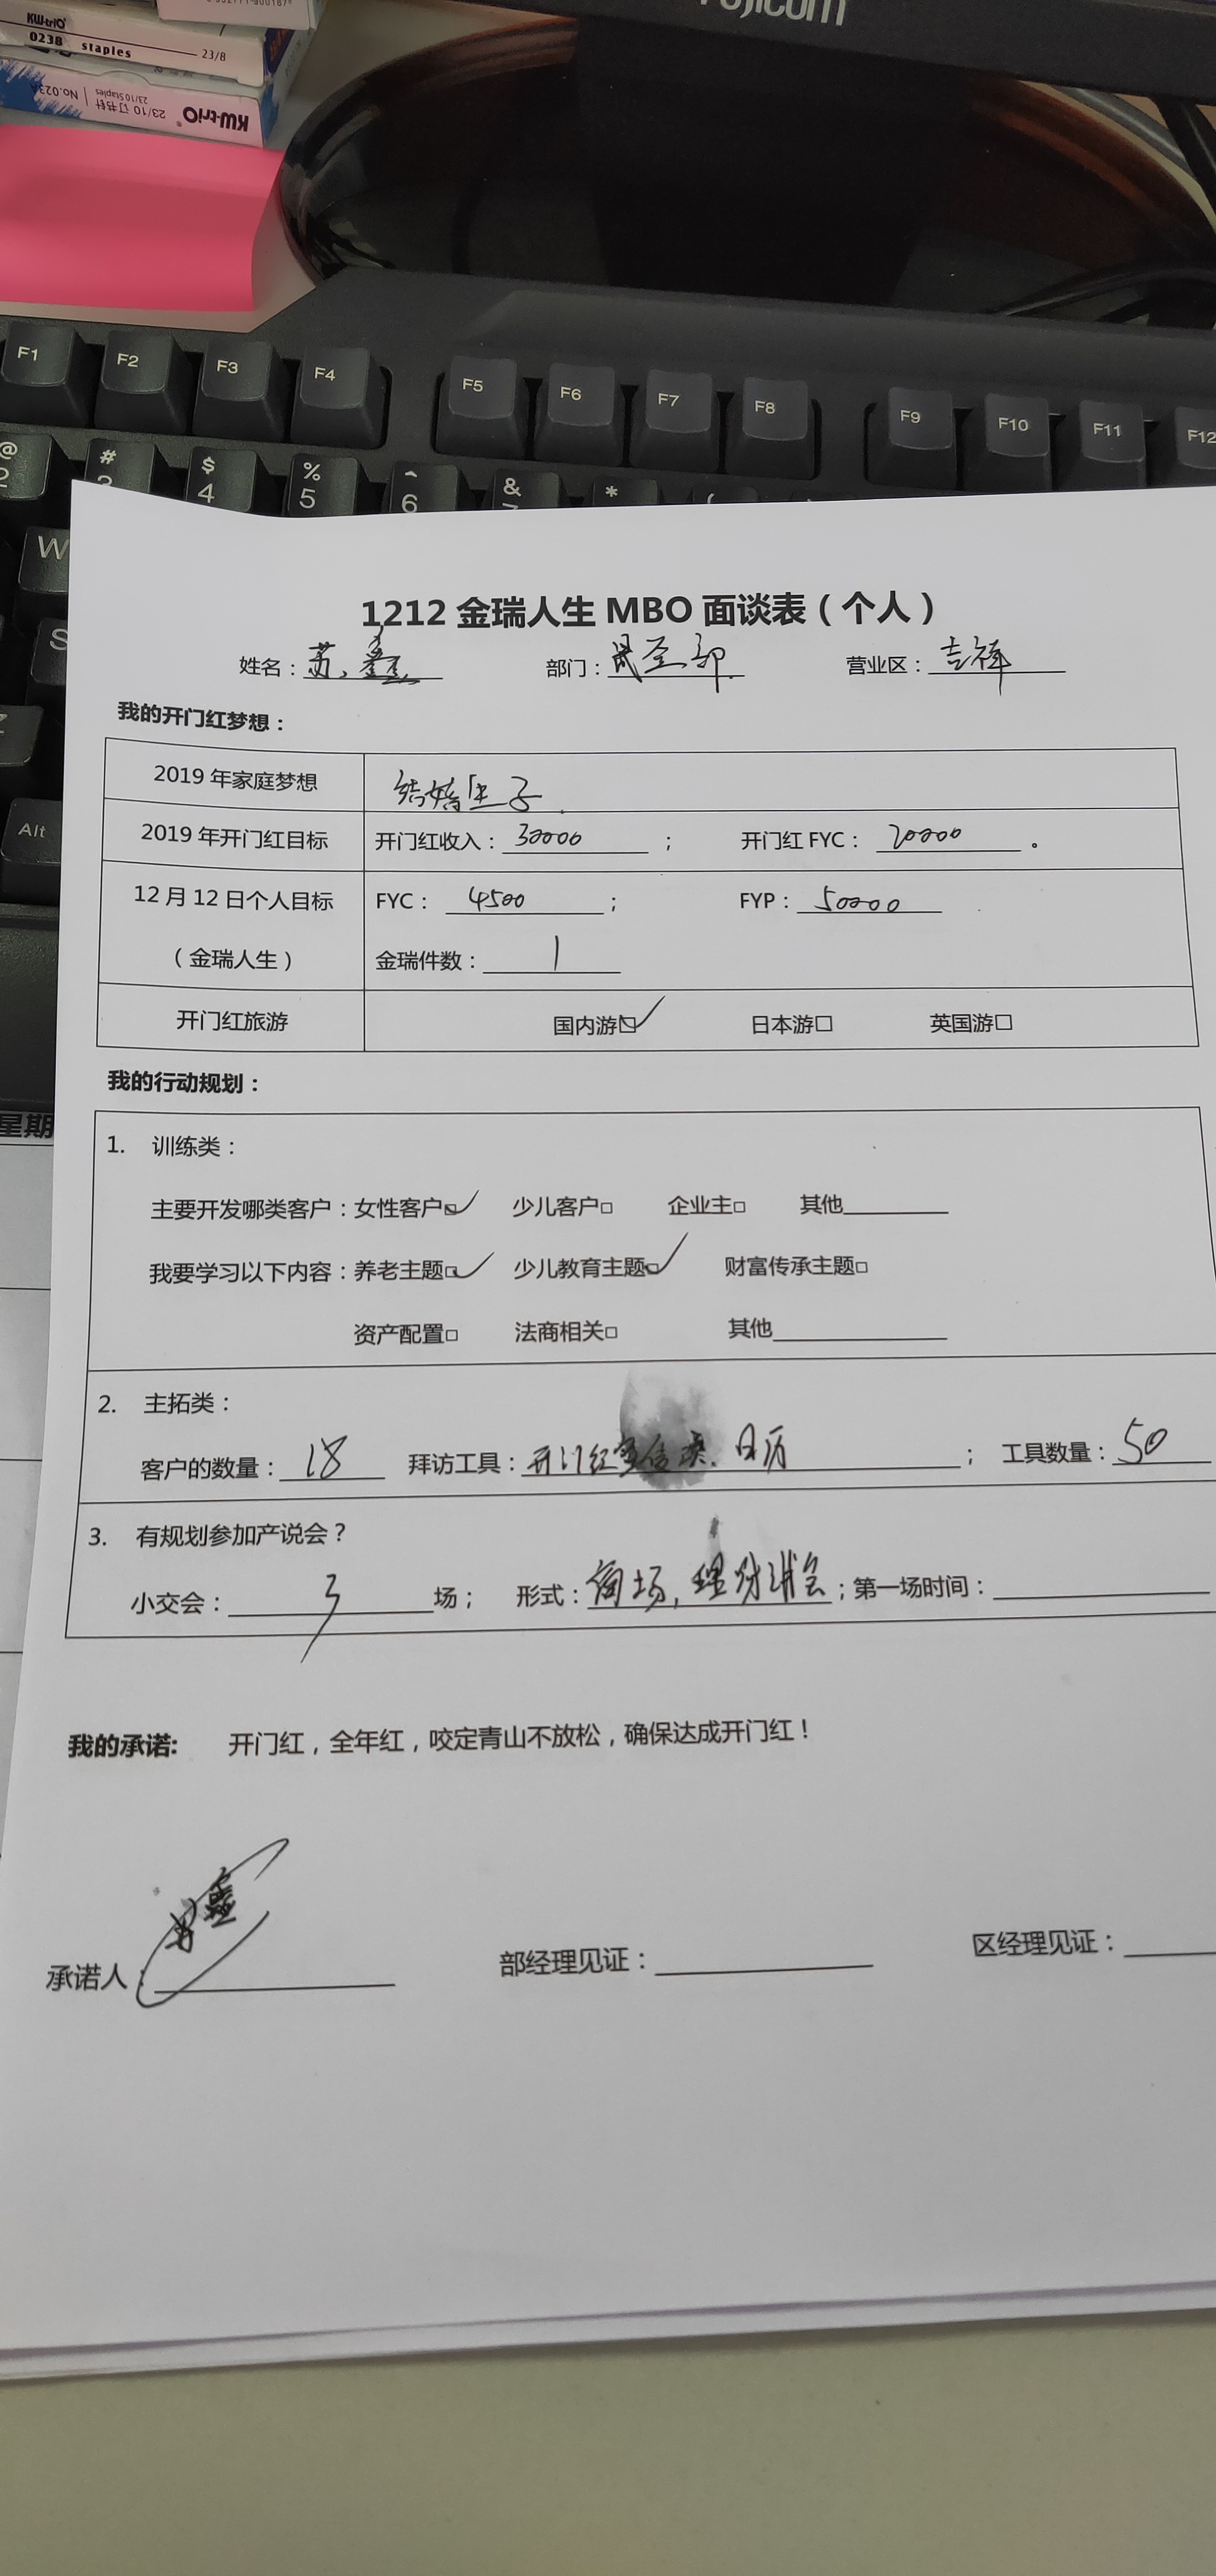 KW-triO
0238 staples 23/8
KW-triO 23/10 订书针 23/10 Staples No.023
F1 F2 F3 F4 F5 F6 F7 F8 F9 F10 F11 F12
@ # $ % ^ & * (
2 3 4 5 6 7
W
S
Alt
星期
1212 金瑞人生 MBO 面谈表（个人）
姓名：苏鑫 部门：晟至部 营业区：吉祥
我的开门红梦想：
2019 年家庭梦想 结婚生子
2019 年开门红目标 开门红收入：30000 ； 开门红 FYC：20000 。
12 月 12 日个人目标 FYC：4500 ； FYP：50000
（金瑞人生） 金瑞件数：1
开门红旅游 国内游☑ 日本游□ 英国游□
我的行动规划：
1. 训练类：
主要开发哪类客户：女性客户☑ 少儿客户□ 企业主□ 其他
我要学习以下内容：养老主题☑ 少儿教育主题☑ 财富传承主题□
资产配置□ 法商相关□ 其他
2. 主拓类：
客户的数量：18 拜访工具：开门红 日历 ； 工具数量：50
3. 有规划参加产说会？
小交会：3 场； 形式：商场，理财讲会；第一场时间：
我的承诺： 开门红，全年红，咬定青山不放松，确保达成开门红！
承诺人：苏鑫 部经理见证： 区经理见证：